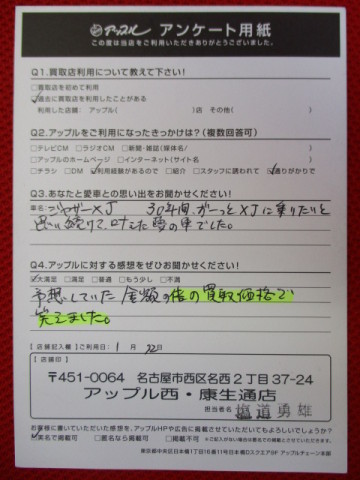 アップル アンケート用紙
この度は当店をご利用いただきありがとうございました。
Q1.買取店利用について教えて下さい!
□買取店を初めて利用
☑過去に買取店を利用したことがある
利用した店舗: アップル( )店 その他( )
Q2.アップルをご利用になったきっかけは?(複数回答可)
□テレビCM □ラジオCM □新聞・雑誌(媒体名 )
□アップルのホームページ □インターネット(サイト名 )
□チラシ □DM ☑利用経験があるので □紹介 □スタッフに誘われて ☑通りがかりで
Q3.あなたと愛車との思い出をお聞かせください!
車名 ジャガーXJ 30年間、ずーっとXJに乗りたいと
思い続けて、叶えた夢の車でした。
Q4.アップルに対する感想をぜひお聞かせください!
☑大満足 □満足 □普通 □もう少し □不満
予想していた金額の倍の買取価格で
売えました。
【店舗記入欄】ご利用日: 1月 22日
【店舗印】
〒451-0064 名古屋市西区名西2丁目37-24
アップル西・康生通店
担当者名 塩道勇雄
お客様に書いていただいた感想を、アップルHPや広告に掲載させていただいてもよろしいでしょうか?
☑実名で掲載可 □匿名なら掲載可 □掲載不可
東京都中央区日本橋1丁目16番11号日本橋Dスクエア9F アップルチェーン本部